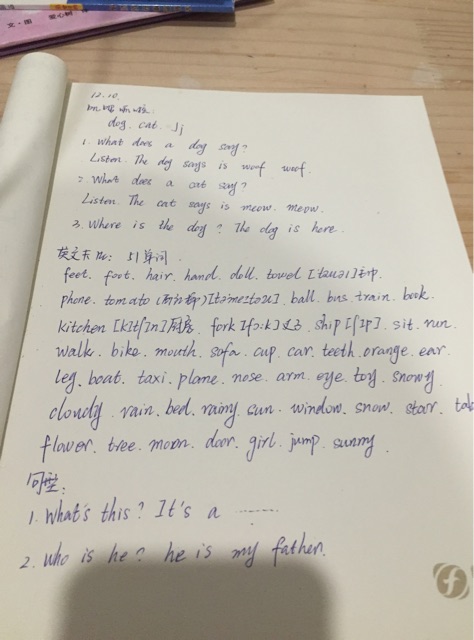 文·图
12.10.
dog. cat. Jj
1. What does a dog say?
Listen. The dog says is woof woof.
2. What does a cat say?
Listen. The cat says is meow. meow.
3. Where is the dog? The dog is here.
英文 51单词.
feet. foot. hair. hand. doll. towel [taʊəl]毛巾.
phone. tomato (西红柿)[təmeɪtəʊ]. ball. bus. train. book.
kitchen [kɪtʃɪn]厨房. fork [fɔ:k]叉子. ship [ʃɪp]. sit. run.
walk. bike. mouth. sofa. cup. car. teeth. orange. ear.
leg. boat. taxi. plane. nose. arm. eye. toy. snowy
cloudy. rain. bed. rainy. sun. window. snow. star. tab
flower. tree. moon. door. girl. jump. sunny.
句型:
1. What's this? It's a ......
2. who is he? he is my father.
f